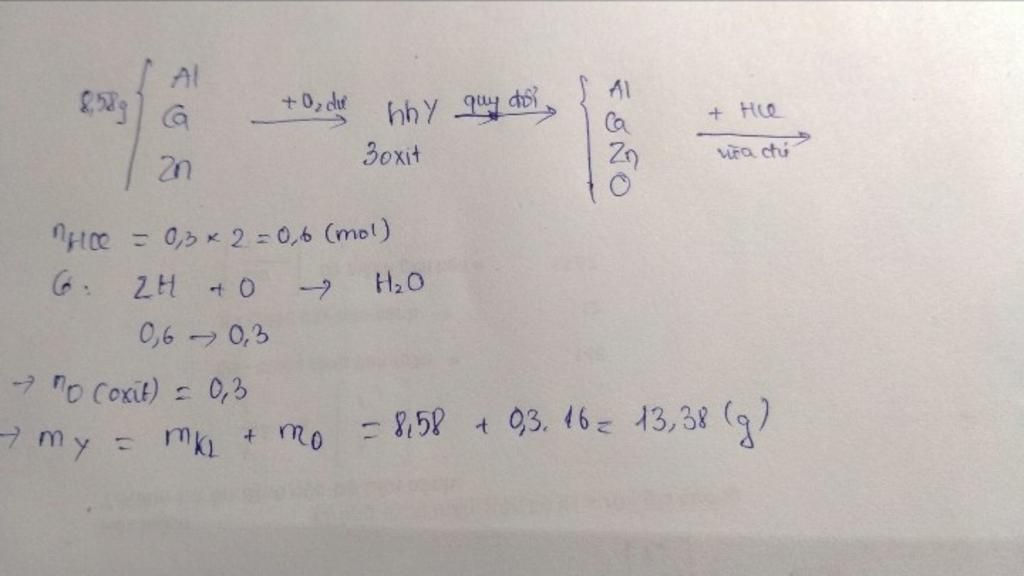 8,58g { Al Ca Zn +O₂ dư → hhY 3 oxit quy đổi → { Al Ca Zn O + HCl vừa đủ →
nHCl = 0,3 × 2 = 0,6 (mol)
Có : 2H + O → H₂O
0,6 → 0,3
→ nO (oxit) = 0,3
→ mY = mKL + mO = 8,58 + 0,3. 16 = 13,38 (g)